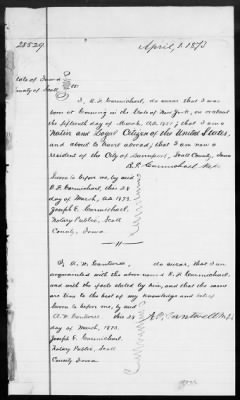 28529
April, 1. 1873
State of Iowa
County of Scott
ss.
I, B. F. Carmichael, do swear that I was
born at Corning in the State of New York, on or about
the fifteenth day of March, A.D. ; that I am a
Native and Loyal Citizen of the United States,
and about to travel abroad; that I am now a
resident of the City of Davenport, Scott County, Iowa
B. F. Carmichael
Sworn to before me, by said
B. F. Carmichael, this 28
day of March, A.D. 1873.
Joseph E. Carmichael.
Notary Public, Scott
County, Iowa
I, A. W. Cantwell, do swear, that I am
acquainted with the above named B. F. Carmichael,
and with the facts stated by him, and that the same
are true to the best of my knowledge and belief
Sworn to before me, by said
A. W. Cantwell, this 28
day of March, 1873.
Joseph E. Carmichael.
Notary Public, Scott
County Iowa
Cantwell